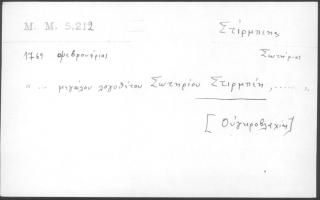 M. M. 5.212
Στίρμπεης
Σωτήριος
1769 φεβρουάριος
"... μεγάλου λογοθέτου Σωτηρίου Στιρμπέη, ..... "
[Οὐγκροβλαχία]